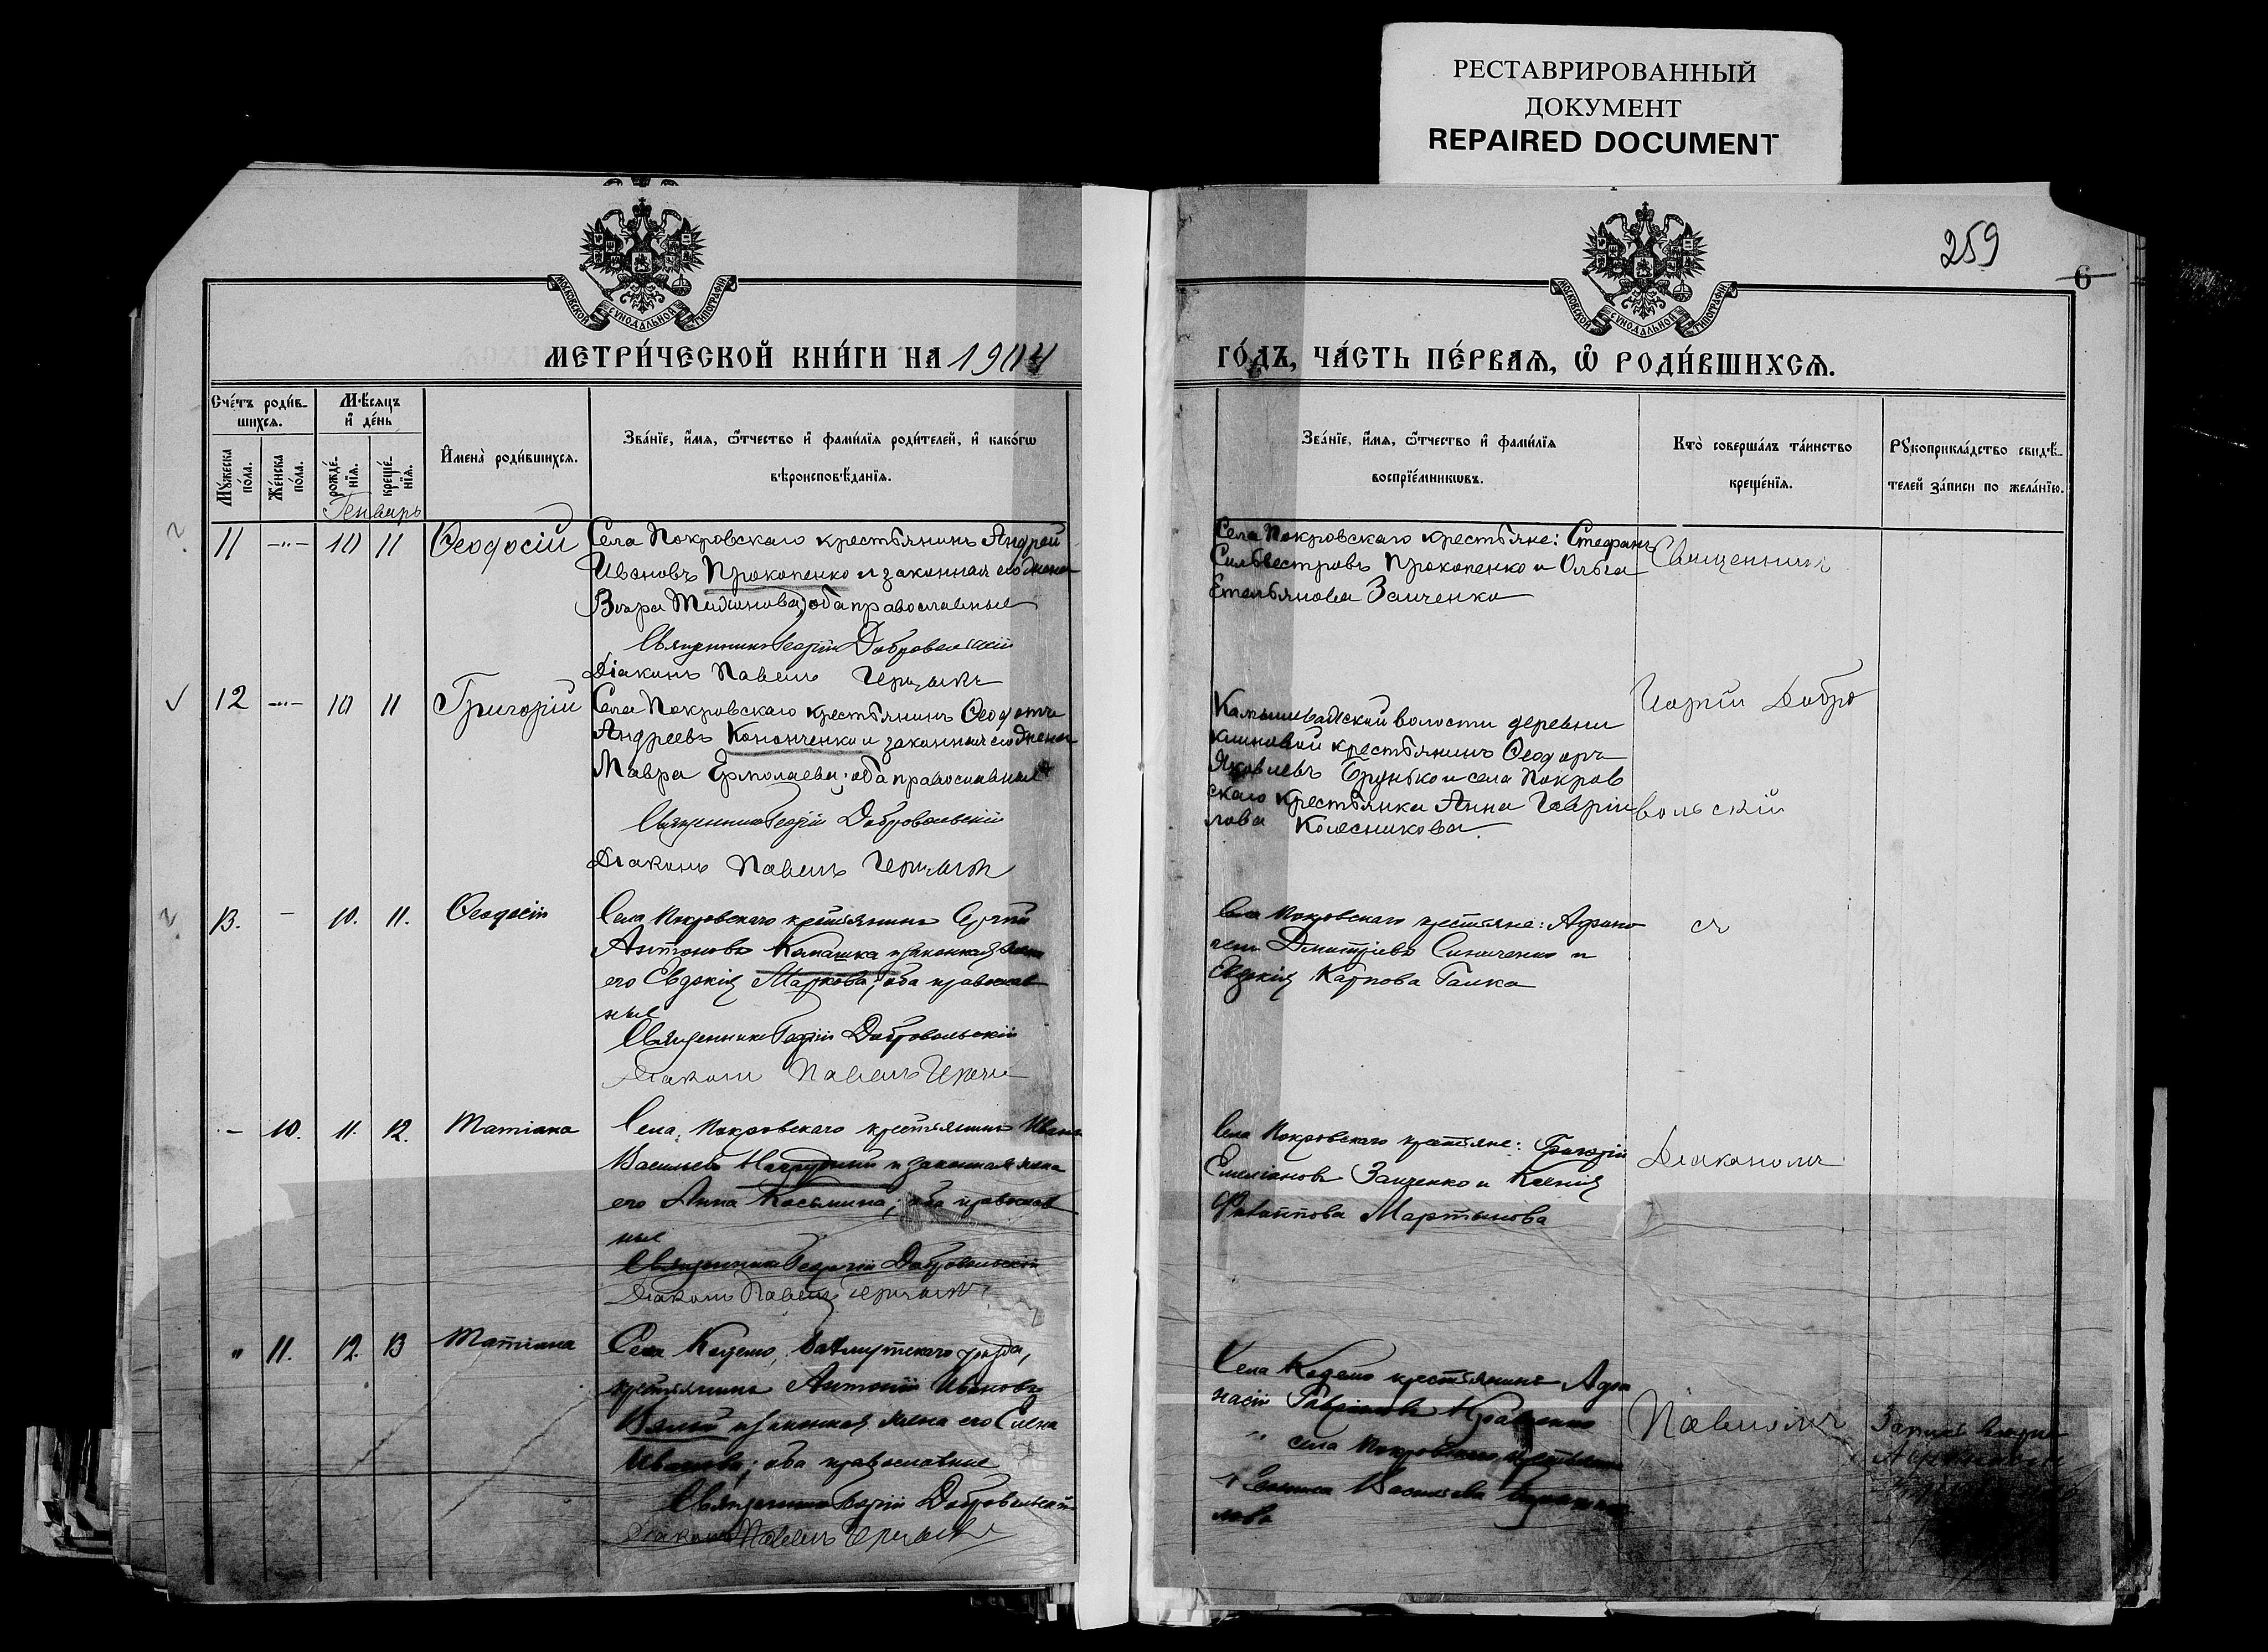 РЕСТАВРИРОВАННЫЙ
ДОКУМЕНТ
REPAIRED DOCUMENT
259
6
МОСКОВСКОЙ СѴНОДАЛЬНОЙ ТИПОГРАФІИ
МОСКОВСКОЙ СѴНОДАЛЬНОЙ ТИПОГРАФІИ
МЕТРИ́ЧЕСКОЙ КНИ́ГИ НА 1904
ГО́ДЪ, ЧА́СТЬ ПЕ́РВАѦ, Ѽ РОДИ́ВШИХСѦ.
Сче́тъ роди́в-
шихсѧ.
Мѣ́сѧцъ
и҆ де́нь
Мꙋ́жеска
по́ла.
Же́нска
по́ла.
рожде́-
нїѧ.
креще́-
нїѧ.
И҆мена̀ роди́вшихсѧ.
Зва́нїе, и҆́мѧ, ѻ҆́тчество и҆ фами́лїѧ роди́телей, и҆ како́гѡ
вѣроисповѣ́данїѧ.
Зва́нїе, и҆́мѧ, ѻ҆́тчество и҆ фами́лїѧ
воспрїе́мникѡвъ.
Кто̀ соверша́лъ та́инство
креще́нїѧ.
Рꙋкоприкла́дство свидѣ́-
телей за́писи по жела́нїю.
Генварь
11 -"- 10 11 Ѳеодосій
Села Покровскаго крестьянинъ Андрей
Ивановъ Прокопенко и законная его жена
оба православные
Священникъ Георгій Добровольскій
Діаконъ Павелъ
Села Покровскаго крестьяне: Стефанъ
Сильвестровъ Прокопенко и Ольга
Емельянова Заиченко
Священник
12 -"- 10 11 Григорій
Села Покровскаго крестьянинъ Ѳеодотъ
Андреевъ Кононченко и законная его жена
Мавра Ермолаева; оба православныя
Священникъ Георгій Добровольскій
Діаконъ Павелъ
Камышевадской волости деревни
крестьянинъ Ѳеодоръ
Яковлевъ и села Покров
скаго крестьянка Анна Гаврiи
лова Колесникова.
Георгій Добро
вольскій
13. - 10. 11. Ѳеодосій
Села Покровскаго крестьянинъ Сергій
Антоновъ Комашка и законная жена
его Евдокія Маркова; оба православ
ные
Священникъ Георгій Добровольскій
Діаконъ Павелъ
Села Покровскаго крестьяне:
Дмитріевъ и
Евдокія Карпова Галка
съ
- 10. 11. 12. Татіана
Села Покровскаго крестьянинъ Иванъ
Васильевъ и законная жена
его Анна Косьмина; оба православ
ные
Священникъ Георгій Добровольскій
Діаконъ Павелъ
Села Покровскаго крестьяне: Григорій
Емеліановъ Заиченко и Ксенія
Филиппова Мартынова
Діакономъ
" 11. 12. 13 Татіана
Села Кодемо, Бахмутскаго уѣзда,
крестьянинъ Антоній Ивановъ
и законная жена его Елена
Иванова; оба православные
Священникъ Георгій Добровольскій
Діаконъ Павелъ
Села Кодемо крестьянинъ Афа
насій
села Покровскаго
Васильева
Павломъ